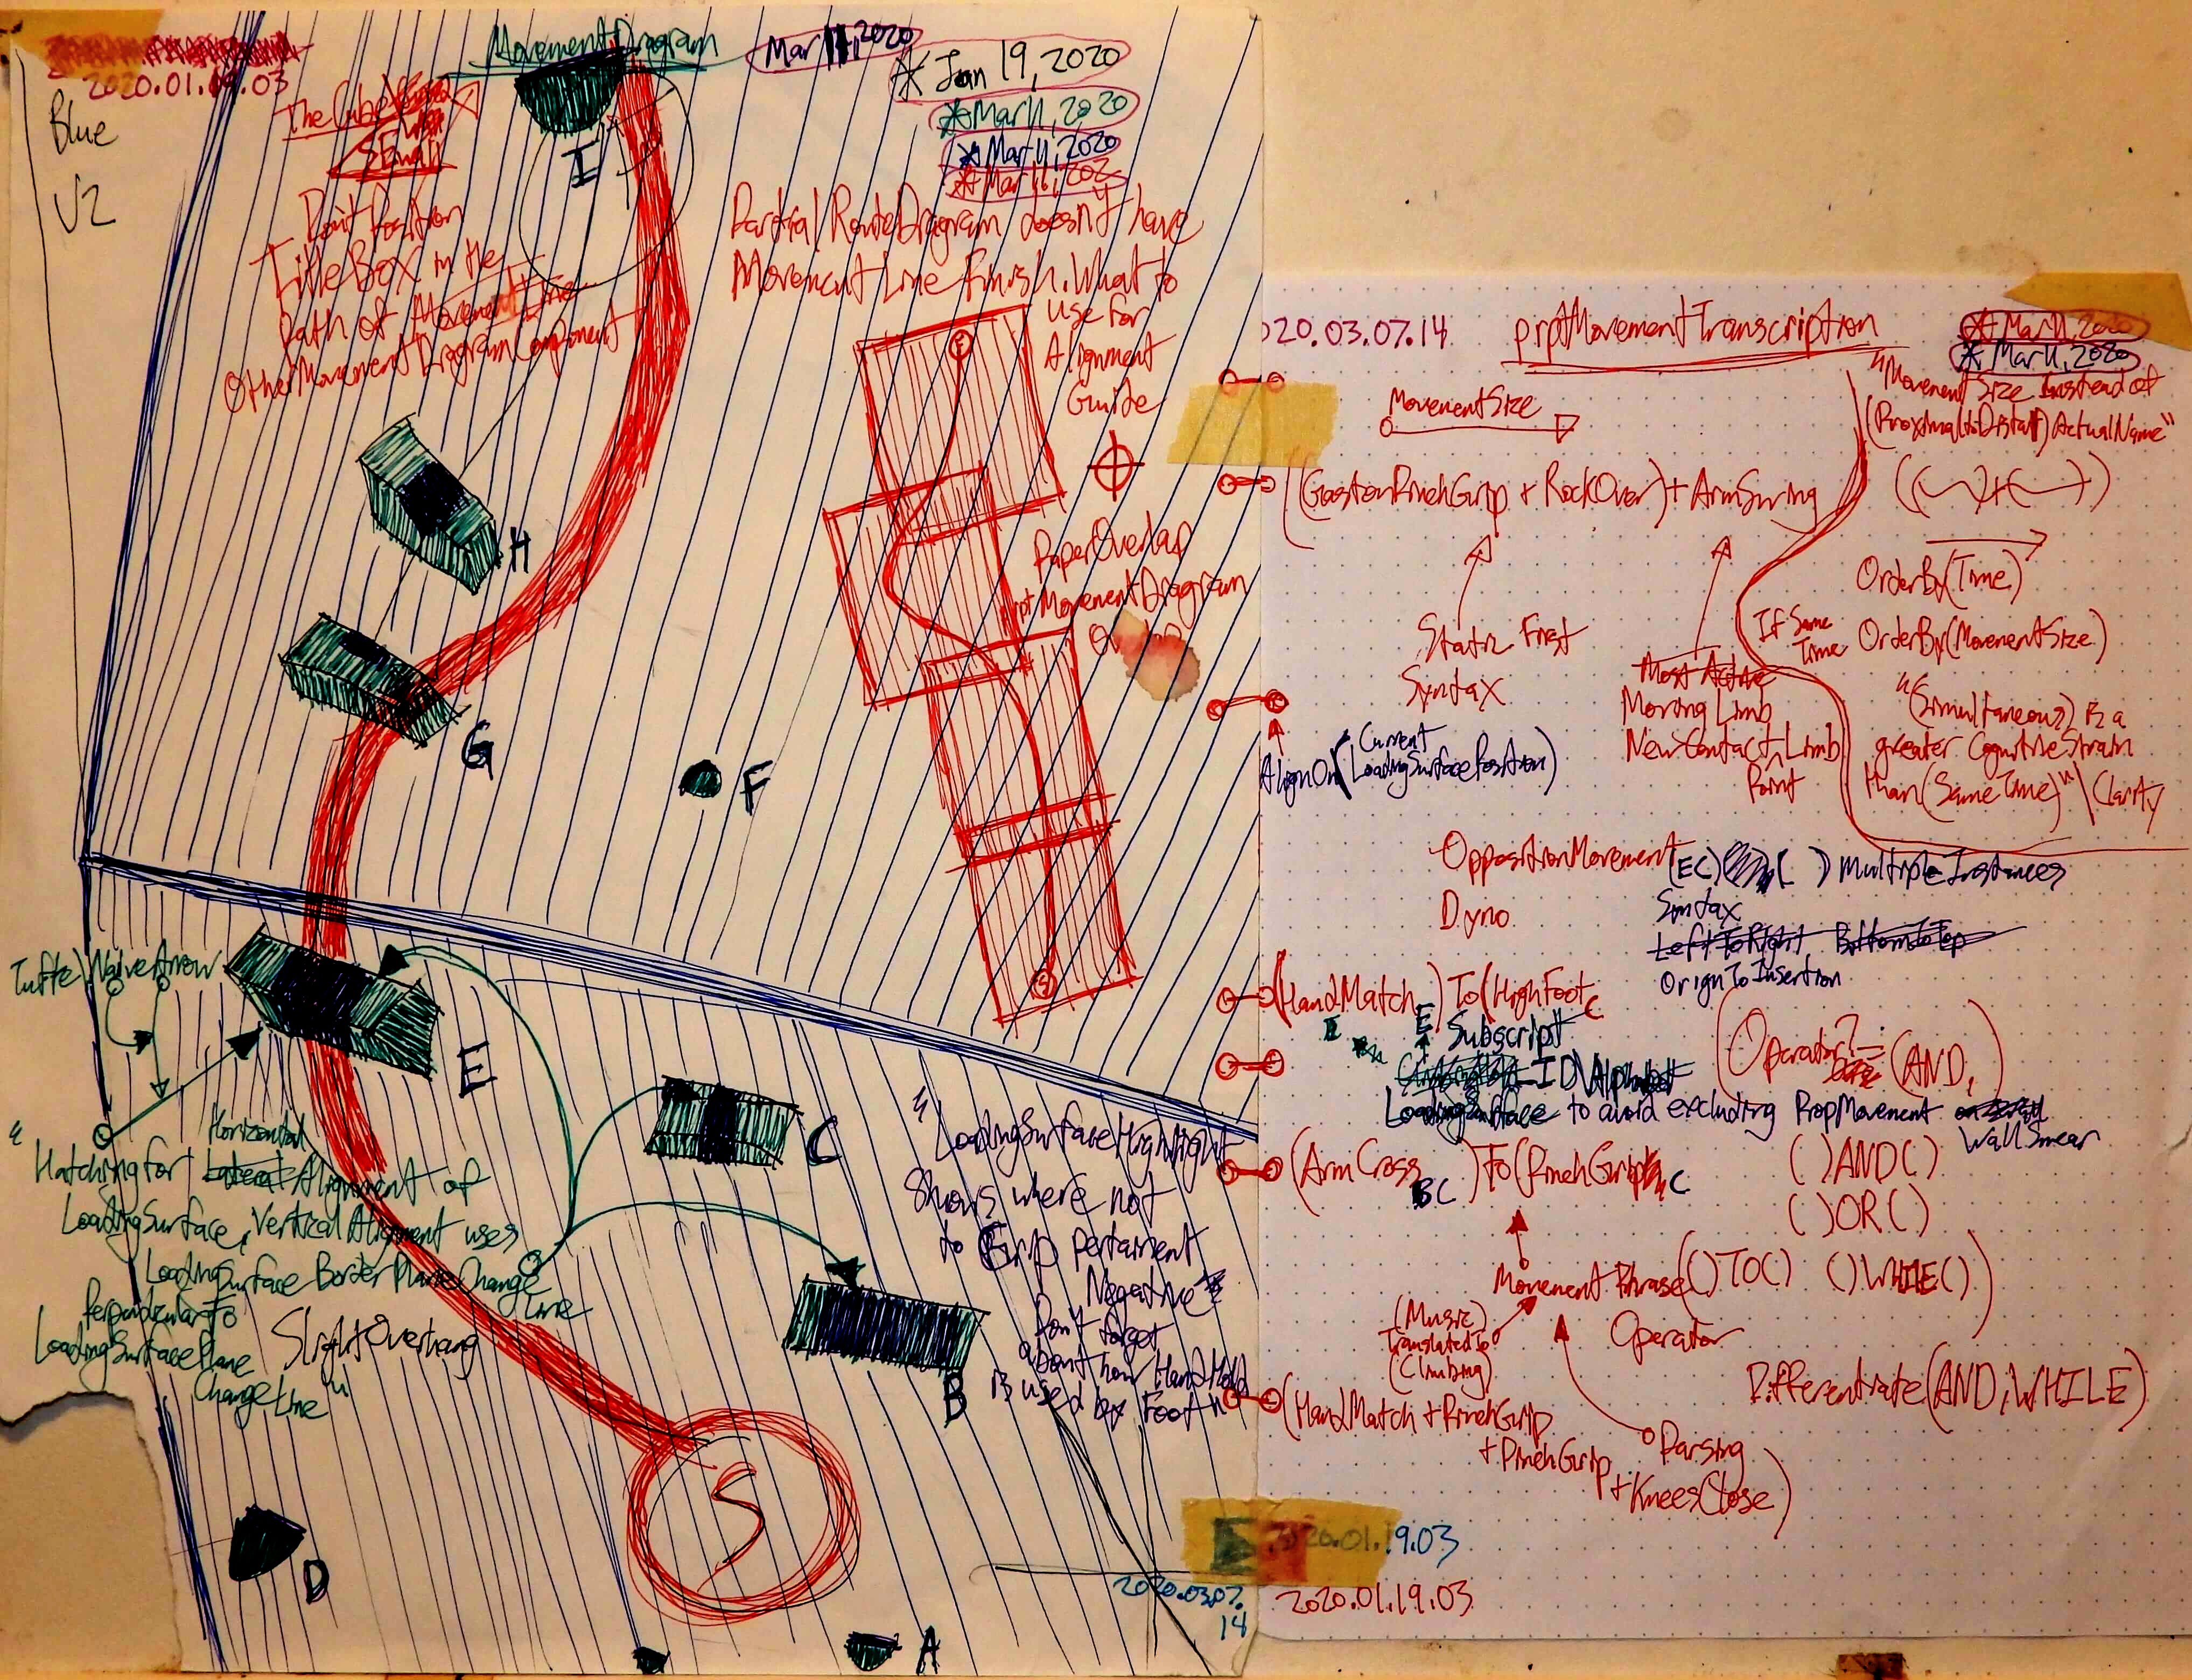 2020.01.19.03
Blue
V2
MovementDiagram
Mar 11, 2020
* Jan 19, 2020
* Mar 11, 2020
* Mar 11, 2020
* Mar 11, 202
The Cube
Small
Don't Position
TitleBox in the
Path of MovementLine
OtherMovementDiagramComponent
I
Partial RouteDiagram doesn't have
MovementLine Finish. What to
use for
Alignment
Guide
F
PaperOverlap
not MovementDiagram
H
G
F
Tufte\NaiveArrow
E
C
"Hatching for Horizontal Alignment of
LoadingSurface, Vertical Alignment uses
LoadingSurface Border Plane Change
Line
Perpendicular to
LoadingSurfacePlane
Change Line"
SlightOverhang
"LoadingSurfaceHighlight
shows where not
to Grip pertainent
Negative
Don't forget
about how HandHold
is used by Foot"
B
S
S
D
A
2020.03.07.
14
020.03.07.14
prptMovementTranscription
* Mar 11, 2020
* Mar 11, 2020
"MovementSize Instead of
(ProximalToDistal) ActualName"
MovementSize
(GastonPinchGrip + RockOver) + ArmSwing
OrderBy(Time)
If Same
Time
OrderBy(MovementSize)
Static First
Syntax
Most Active
Moving Limb
New Contact Limb
Point
"(Simultaneous) is a
greater CognitiveStrain
than (SameTime)" \ Clarity
AlignOn(Current
LoadingSurfacePosition)
OppositionMovement (EC) ( ) Multiple Instances
Dyno
Syntax
LeftToRight BottomToTop
OriginToInsertion
(HandMatch E) To (HighFoot C
Subscript
ID\Alphabet
LoadingSurface to avoid excluding PropMovement
WallSmear
(Operator? = (AND,)
(ArmCross BC) To (PinchGrip C
( )AND( )
( )OR( )
Movement Phrase ( )TO( ) ( )WHILE( )
Operator
(Music)
TranslatedTo
(Climbing)
Differentiate(AND, WHILE)
(HandMatch + PinchGrip
+ PinchGrip
+ KneesClose)
Parsing
2020.01.19.03
2020.01.19.03